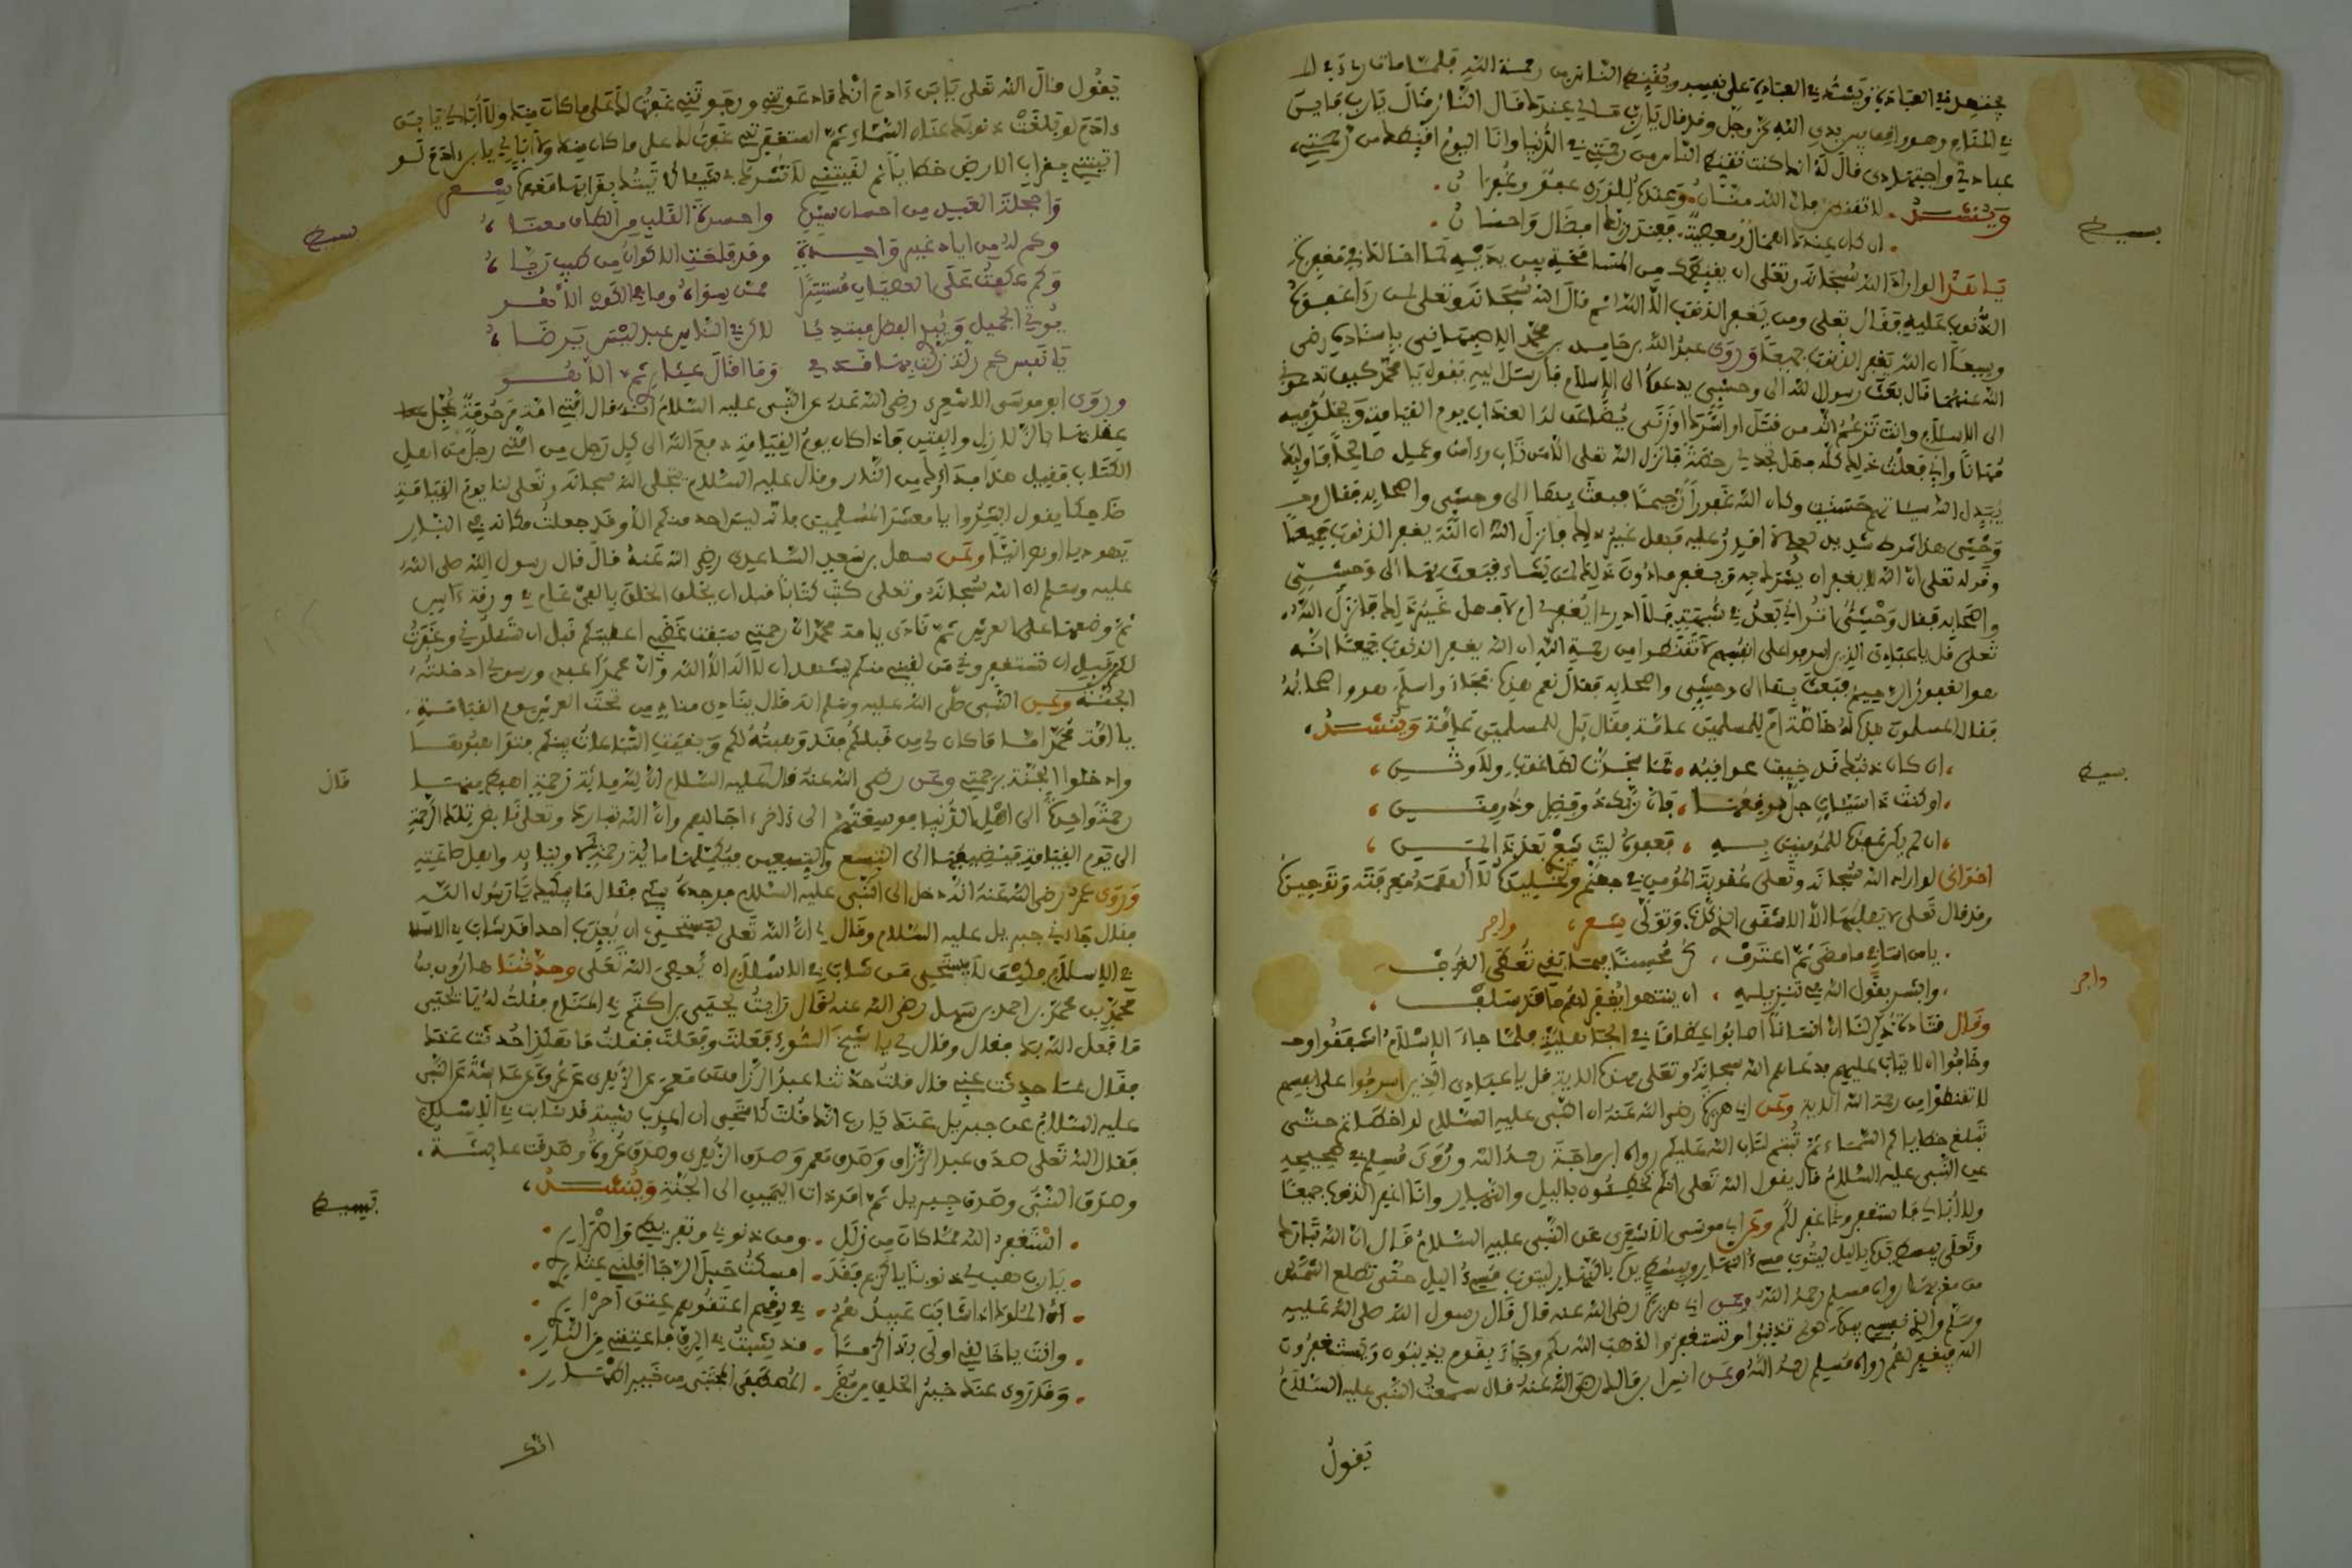 يجتهد في العبادة ويشدد في العبادة على نفسه ويقنط الناس من رحمة الله فلما مات
في المقام وهو واقف بين يدي الله عز وجل وقد قال يارب مالي عندك فقال النار فقال يارب فأين
عبادتي واجتهادي قال له انك كنت تقنط الناس من رحمتي في الدنيا وانا اليوم اقنطك من رحمتي
وينشد لا تقنطن فإن الله منان وعنده للورى عفو وغفران
ان كان عندك اهمال ومعصية فعند ربك افضال واحسان
يا هذا لو اراد الله سبحانه وتعلى ان
الذنوب عليه فقال تعلى ومن يغفر الذنوب الا الله ثم قال الله سبحانه وتعلى
ان الله يغفر الذنوب جميعا وروى عبد الله بن حامد بن محمد الاصبهاني باسناده رضي
الله عنهما قال بعث رسول الله الى وحشي يدعوه الى الاسلام فأرسل اليه يقول يا محمد كيف تدعوني
الى الاسلام وانت تزعم انه من قتل او اشرك او زنى يضاعف له العذاب يوم القيامة ويخلد فيه
مهانا واني فعلت ذلك كله فهل تجد لي رخصة فانزل الله تعلى الا من تاب وءامن وعمل صالحا فاوليك
يبدل الله سيئاتهم حسنت وكان الله غفورا رحيما فبعث بها الى وحشي واصحابه فقال
وحشي هذا شرط شديد لعلي لا اقدر عليه فهل غير ذلك فانزل الله ان الله يغفر الذنوب جميعا
وقوله تعلى ان الله لا يغفر ان يشرك به ويغفر ما دون ذلك لمن يشاء فبعث بها الى وحشي
واصحابه فقال وحشي اني بعد في شبهة فلا ادري ايغفر لي ام لا فهل غير ذلك فانزل الله
تعلى قل يا عبادي الذين اسرفوا على انفسهم لا تقنطوا من رحمة الله ان الله يغفر الذنوب جميعا انه
هو الغفور الرحيم فبعث بها الى وحشي واصحابه فقال نعم هذا فجاء واسلم هو واصحابه
فقال المسلمون هذا له خاصة ام للمسلمين عامة فقال بل للمسلمين عامة وينشد
ان كان ذنبك قد خيفت عواقبه
او كنت ذا سيئات جل موقعها فان ربك ذو فضل وذو منن
ان لم يكن عفوه للمؤمنين به فعفوه ليت شعري بعد ذاك لمن
اخواني لو اراد الله سبحانه وتعلى عقوبة المؤمن في جهنم
وقد قال تعلى لا يصليها الا الاشقى الذي كذب وتولى شعر
يامن اسا في ما مضى ثم اعترف كن محسنا فيما بقي تعطى الغرف
وابشر بقول الله في تنزيله ان ينتهوا يغفر لهم ما قد سلف
وقال قتادة ذكر لنا ان اناسا اصابوا عظاما في الجاهلية فلما جاء الاسلام اشفقوا
وخافوا ان لا يتاب عليهم فدعاهم الله سبحانه وتعلى بهذه الاية قل يا عبادي الذين اسرفوا على انفسهم
لا تقنطوا من رحمة الله الاية وعن ابي هريرة رضي الله عنه ان النبي عليه السلام لو اخطاتم حتى
تبلغ خطاياكم السماء ثم تبتم لتاب الله عليكم رواه ابن ماجة رحمه الله وروى مسلم في صحيحه
عن النبي عليه السلام قال يقول الله تعلى انكم تخطئون بالليل والنهار وانا اغفر الذنوب جميعا
ولا ابالي فاستغفروني اغفر لكم وعن ابي موسى الاشعري عن النبي عليه السلام قال ان الله تبارك
وتعلى يبسط يده بالليل ليتوب مسيء النهار ويبسط يده بالنهار ليتوب مسيء الليل حتى تطلع الشمس
من مغربها رواه مسلم رحمه الله وعن ابي هريرة رضي الله عنه قال قال رسول الله صلى الله عليه
وسلم والذي نفسي بيده لو لم تذنبوا وتستغفروا لذهب الله بكم وجاء بقوم يذنبون ويستغفرون
الله فيغفر لهم رواه مسلم رحمه الله وعن انس بن مالك رضي الله عنه قال سمعت النبي عليه السلام
يقول
بسيط
بسيط
واجر
يقول قال الله تعلى يا بن ءادم انك ما دعوتني ورجوتني غفرت لك على ما كان منك ولا ابالي يا بن
ءادم لو بلغت ذنوبك عنان السماء ثم استغفرتني غفرت لك على ما كان منك ولا ابالي يا بن ءادم لو
اتيتني بقراب الارض خطايا ثم لقيتني لا تشرك بي شيئا لاتيتك بقرابها مغفرة شعر
واخجلة العبد من احسان سيده واحسرة القلب من الطاف معناه
وكم له من اياد غير واحدة وقد
وكم عكفت على العصيان مستترا عمن سواه وما في الكون الا هو
يولي الجميل ويبدي الفضل مبتديا لاكن في الناس عبد ليس يرضاه
يا نفس كم زلة زلت بها قدمي وما اقال عثاري ثم الا هو
وروى ابو موسى الاشعري رضي الله عنه عن النبي عليه السلام انه قال امتي امة مرحومة
عقابها بالزلازل والفتن فاذا كان يوم القيامة دفع الله الى كل رجل من امتي رجلا من اهل
الكتاب فقيل هذا فداؤك من النار وقال عليه السلام يتجلى الله سبحانه وتعلى لنا يوم القيامة
ضاحكا يقول ابشروا يا معشر المسلمين فانه ليس احد منكم الا وقد جعلت مكانه في النار
يهوديا او نصرانيا وعن سهل بن سعيد الساعدي رضي الله عنه قال قال رسول الله صلى الله
عليه وسلم ان الله سبحانه وتعلى كتب كتابا قبل ان يخلق الخلق بالفي عام في ورقة ءاس
ثم وضعها على العرش ثم نادى يا امة محمد ان رحمتي سبقت غضبي اعطيتكم قبل ان تسئلوني وغفرت
لكم قبل ان تستغفروني من لقيني منكم يشهد ان لا اله الا الله وان محمدا عبدي ورسولي ادخلته
الجنة وعن النبي صلى الله عليه وسلم انه قال ينادي مناد من تحت العرش يوم القيامة
يا امة محمد اما ما كان لي من قبلكم فقد وهبته لكم وبقيت التباعات بينكم فتواهبوها
وادخلوا الجنة برحمتي وعن رضي الله عنه قال عليه السلام ان لله ماية رحمة اهبط منها
رحمة واحدة الى اهل الدنيا فوسعتهم الى ءاخر ءاجالهم وان الله تبارك وتعلى قابض تلك الرحمة
الى يوم القيامة فيضيفها الى التسع والتسعين فيكملها ماية رحمة لاوليائه واهل طاعته
وروى عمر رضي الله عنه انه دخل الى النبي عليه السلام فوجده يبكي فقال ما يبكيك يا رسول الله
فقال جاءني جبريل عليه السلام وقال لي ان الله تعلى يستحيي ان يعذب احدا قد شاب في الاسلا
في الاسلام فكيف لا يستحيي من شاب في الاسلام ان يعصي الله تعلى وحدثنا هارون بن
محمد بن احمد بن سهل رضي الله عنه قال رايت يحيى بن اكثم في المنام فقلت له يا يحيى
ما فعل الله بك فقال وقال لي يا شيخ السوء فعلت وفعلت فقلت ما بهذا حدثت عنك
فقال بما حدثت عني قال قلت حدثنا عبد الرزاق عن معمر عن الزهري عن عروة عن عائشة عن النبي
عليه السلام عن جبريل عنك يا رب انك قلت لاستحيي ان اعذب شيبة قد شابت في الاسلام
فقال الله تعلى صدق عبد الرزاق وصدق معمر وصدق الزهري وصدق عروة وصدقت عائشة
وصدق النبي وصدق جبريل ثم امر ذات اليمين الى الجنة وينشد
استغفر الله مما كان من زلل ومن ذنوبي وتفريطي واصراري
يارب هب لي ذنوبي يا كريم فقد امسكت حبل الرجا اقلني عثاري
ان الملوك اذا شابت عبيدهم في رقهم اعتقوهم عتق احرار
وانت يا خالقي اولى بذا كرما قد شبت في الرق فاعتقني من النار
وقد روى عنك خير الخلق من مضر المصطفى المجتبى من خير
انك
بسيط
قال
بسيط